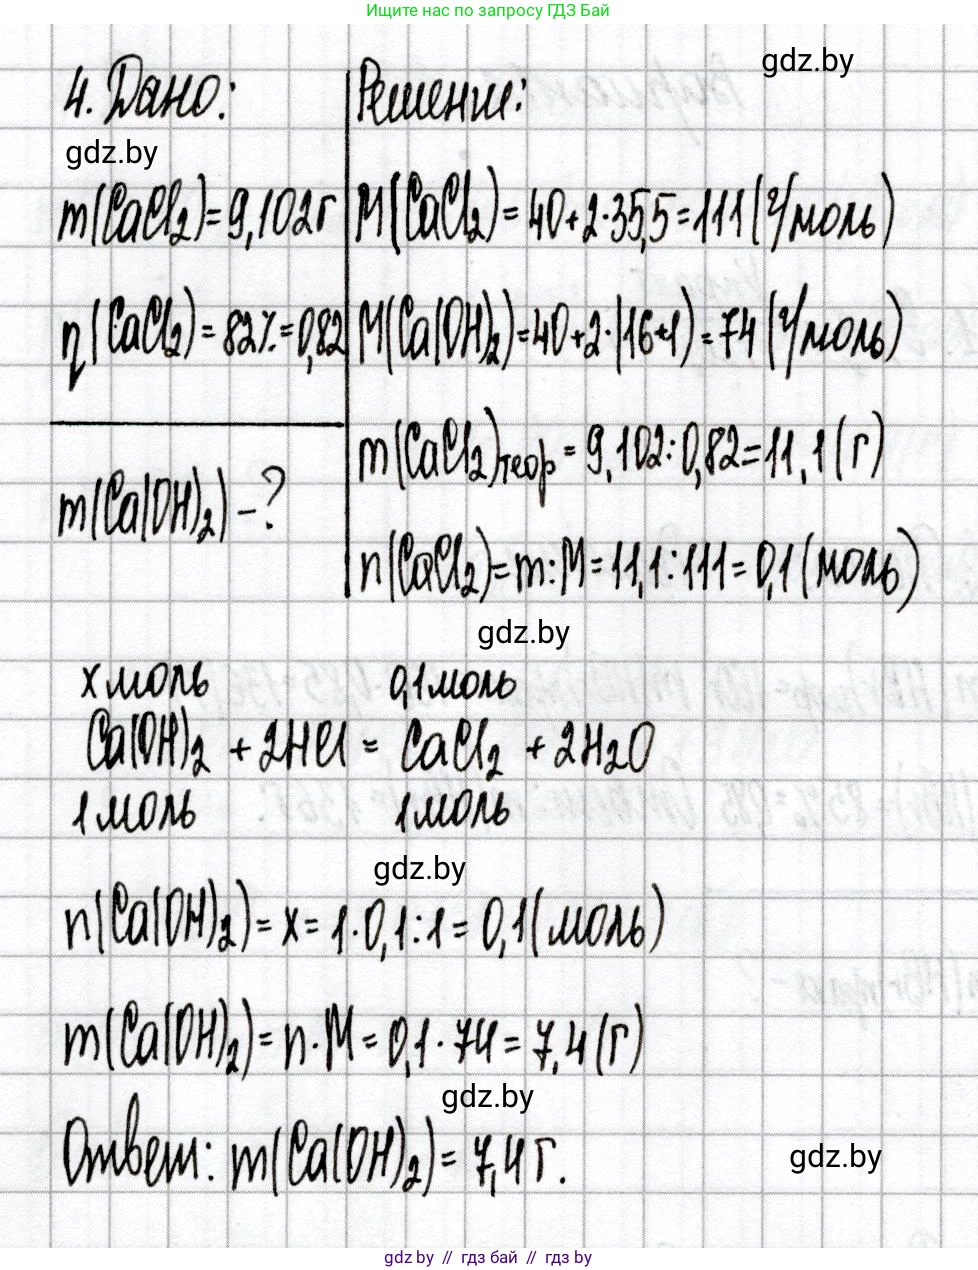 Ищите нас по запросу ГДЗ Бай
gdz.by
4. Дано:
gdz.by
m(CaCl₂)=9,102г
η(CaCl₂)=82%=0,82
m(Ca(OH)₂)-?
Решение:
M(CaCl₂)=40+2·35,5=111(г/моль)
M(Ca(OH)₂)=40+2·(16+1)=74(г/моль)
m(CaCl₂)теор=9,102:0,82=11,1(г)
n(CaCl₂)=m:M=11,1:111=0,1(моль)
gdz.by
x моль 0,1моль
Ca(OH)₂ + 2HCl = CaCl₂ + 2H₂O
1 моль 1моль
gdz.by
n(Ca(OH)₂)=x=1·0,1:1=0,1(моль)
m(Ca(OH)₂)=n·M=0,1·74=7,4(г)
gdz.by
Ответ: m(Ca(OH)₂)=7,4г.
gdz.by
gdz by // гдз бай // gdz by